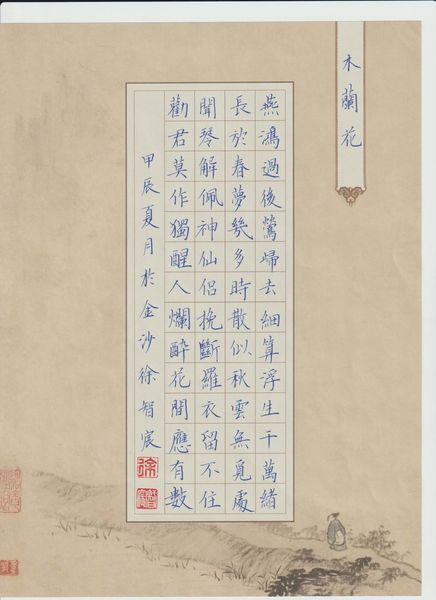 木蘭花
燕鴻過後鶯歸去細算浮生千萬緒
長於春夢幾多時散似秋雲無覓處
聞琴解佩神仙侶挽斷羅衣留不住
勸君莫作獨醒人爛醉花間應有數
甲辰夏月於金沙徐智宸